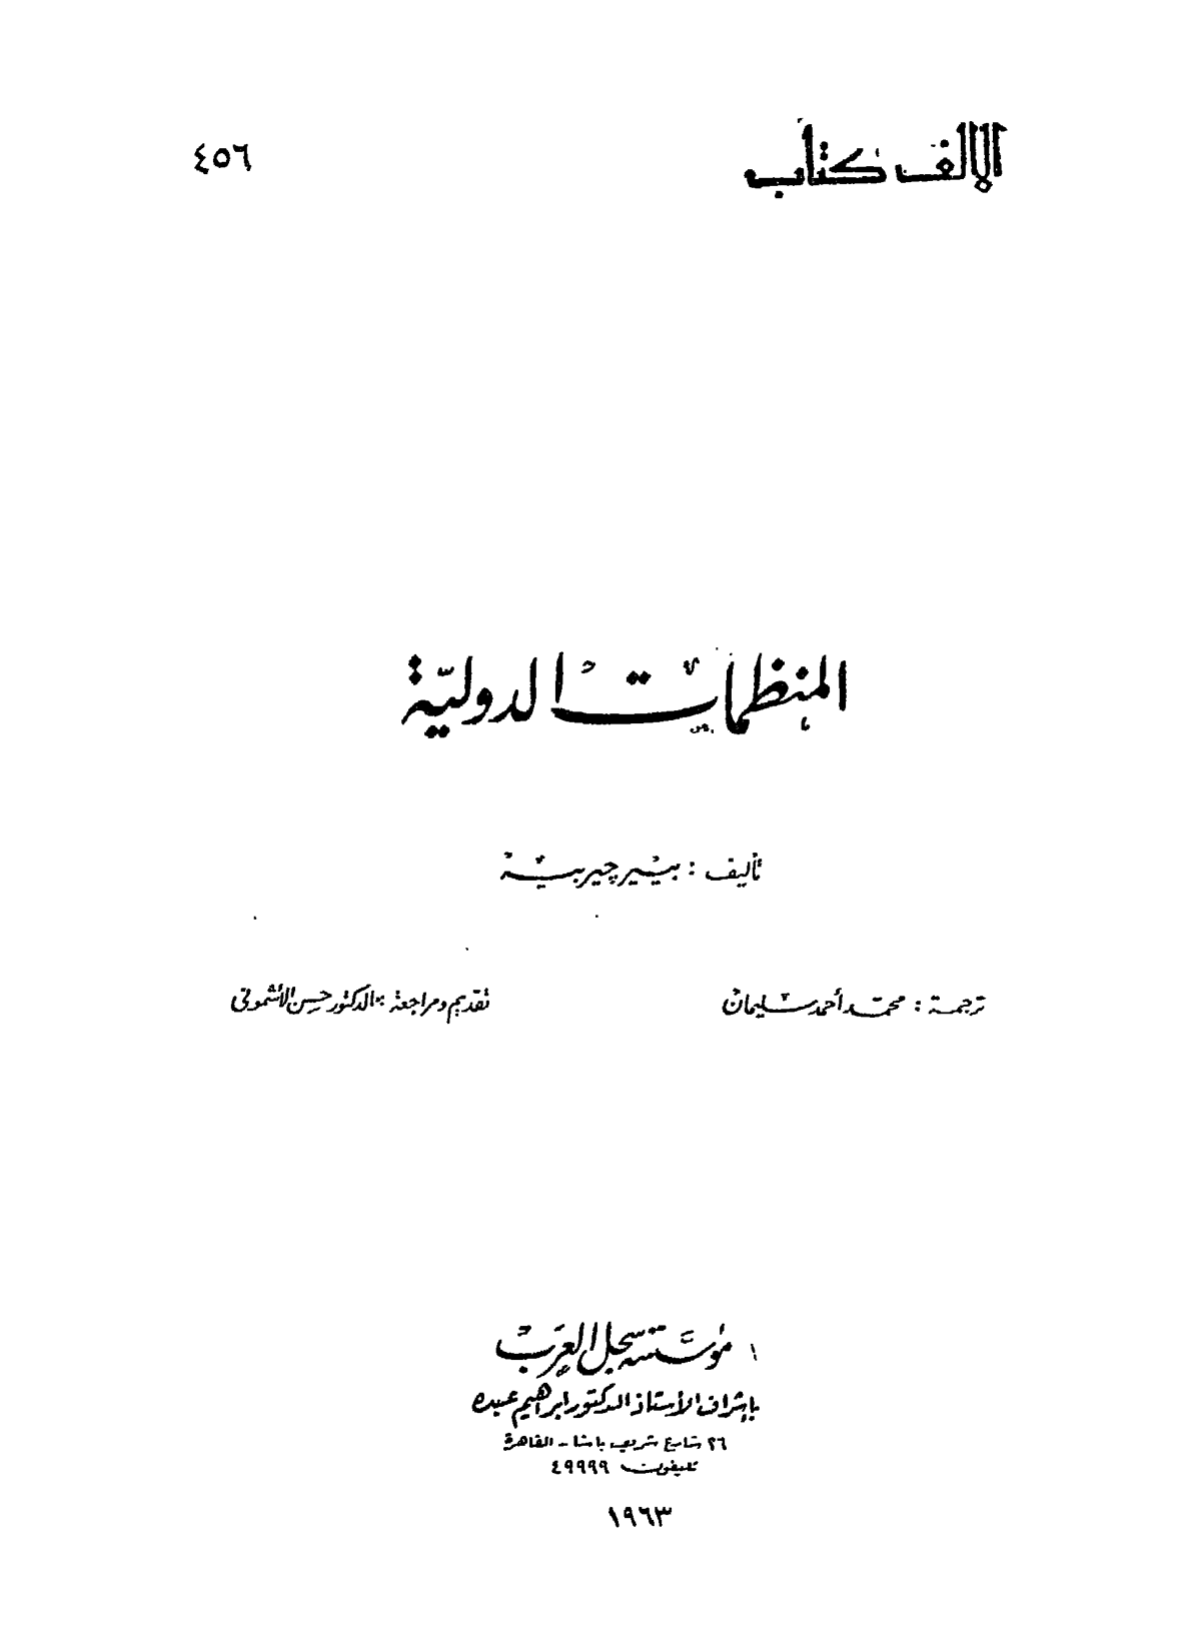 الألف كتاب
٤٥٦
المنظمات الدولية
تأليف : بيير چيربيه
ترجمة : محمد أحمد سليمان
تقديم ومراجعة : الدكتور حسن الأشمونى
مؤسسة سجل العرب
بإشراف الأستاذ الدكتور إبراهيم عبده
٢٦ شارع شريف باشا - القاهرة
تليفون ٤٩٩٩٩
١٩٦٣